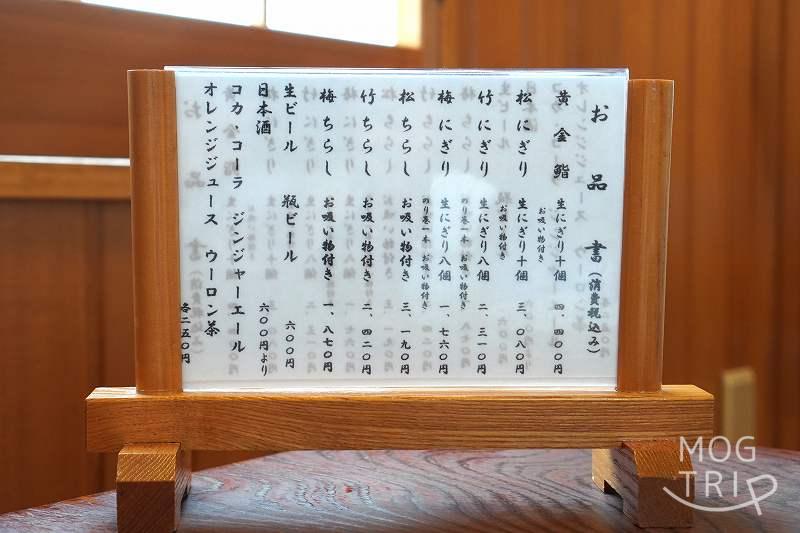 お品書(消費税込み)
黄金鮨 生にぎり十個 四、四〇〇円
お吸い物付き
松にぎり 生にぎり十個 三、〇八〇円
お吸い物付き
竹にぎり 生にぎり八個 二、三一〇円
のり巻一本 お吸い物付き
梅にぎり 生にぎり八個 一、七六〇円
のり巻一本 お吸い物付き
松ちらし お吸い物付き 三、一九〇円
竹ちらし お吸い物付き 二、四二〇円
梅ちらし お吸い物付き 一、八七〇円
生ビール 瓶ビール 六〇〇円
日本酒 六〇〇円より
コカ コーラ ジンジャーエール
オレンジジュース ウーロン茶
各二五〇円
MOG
TRIP